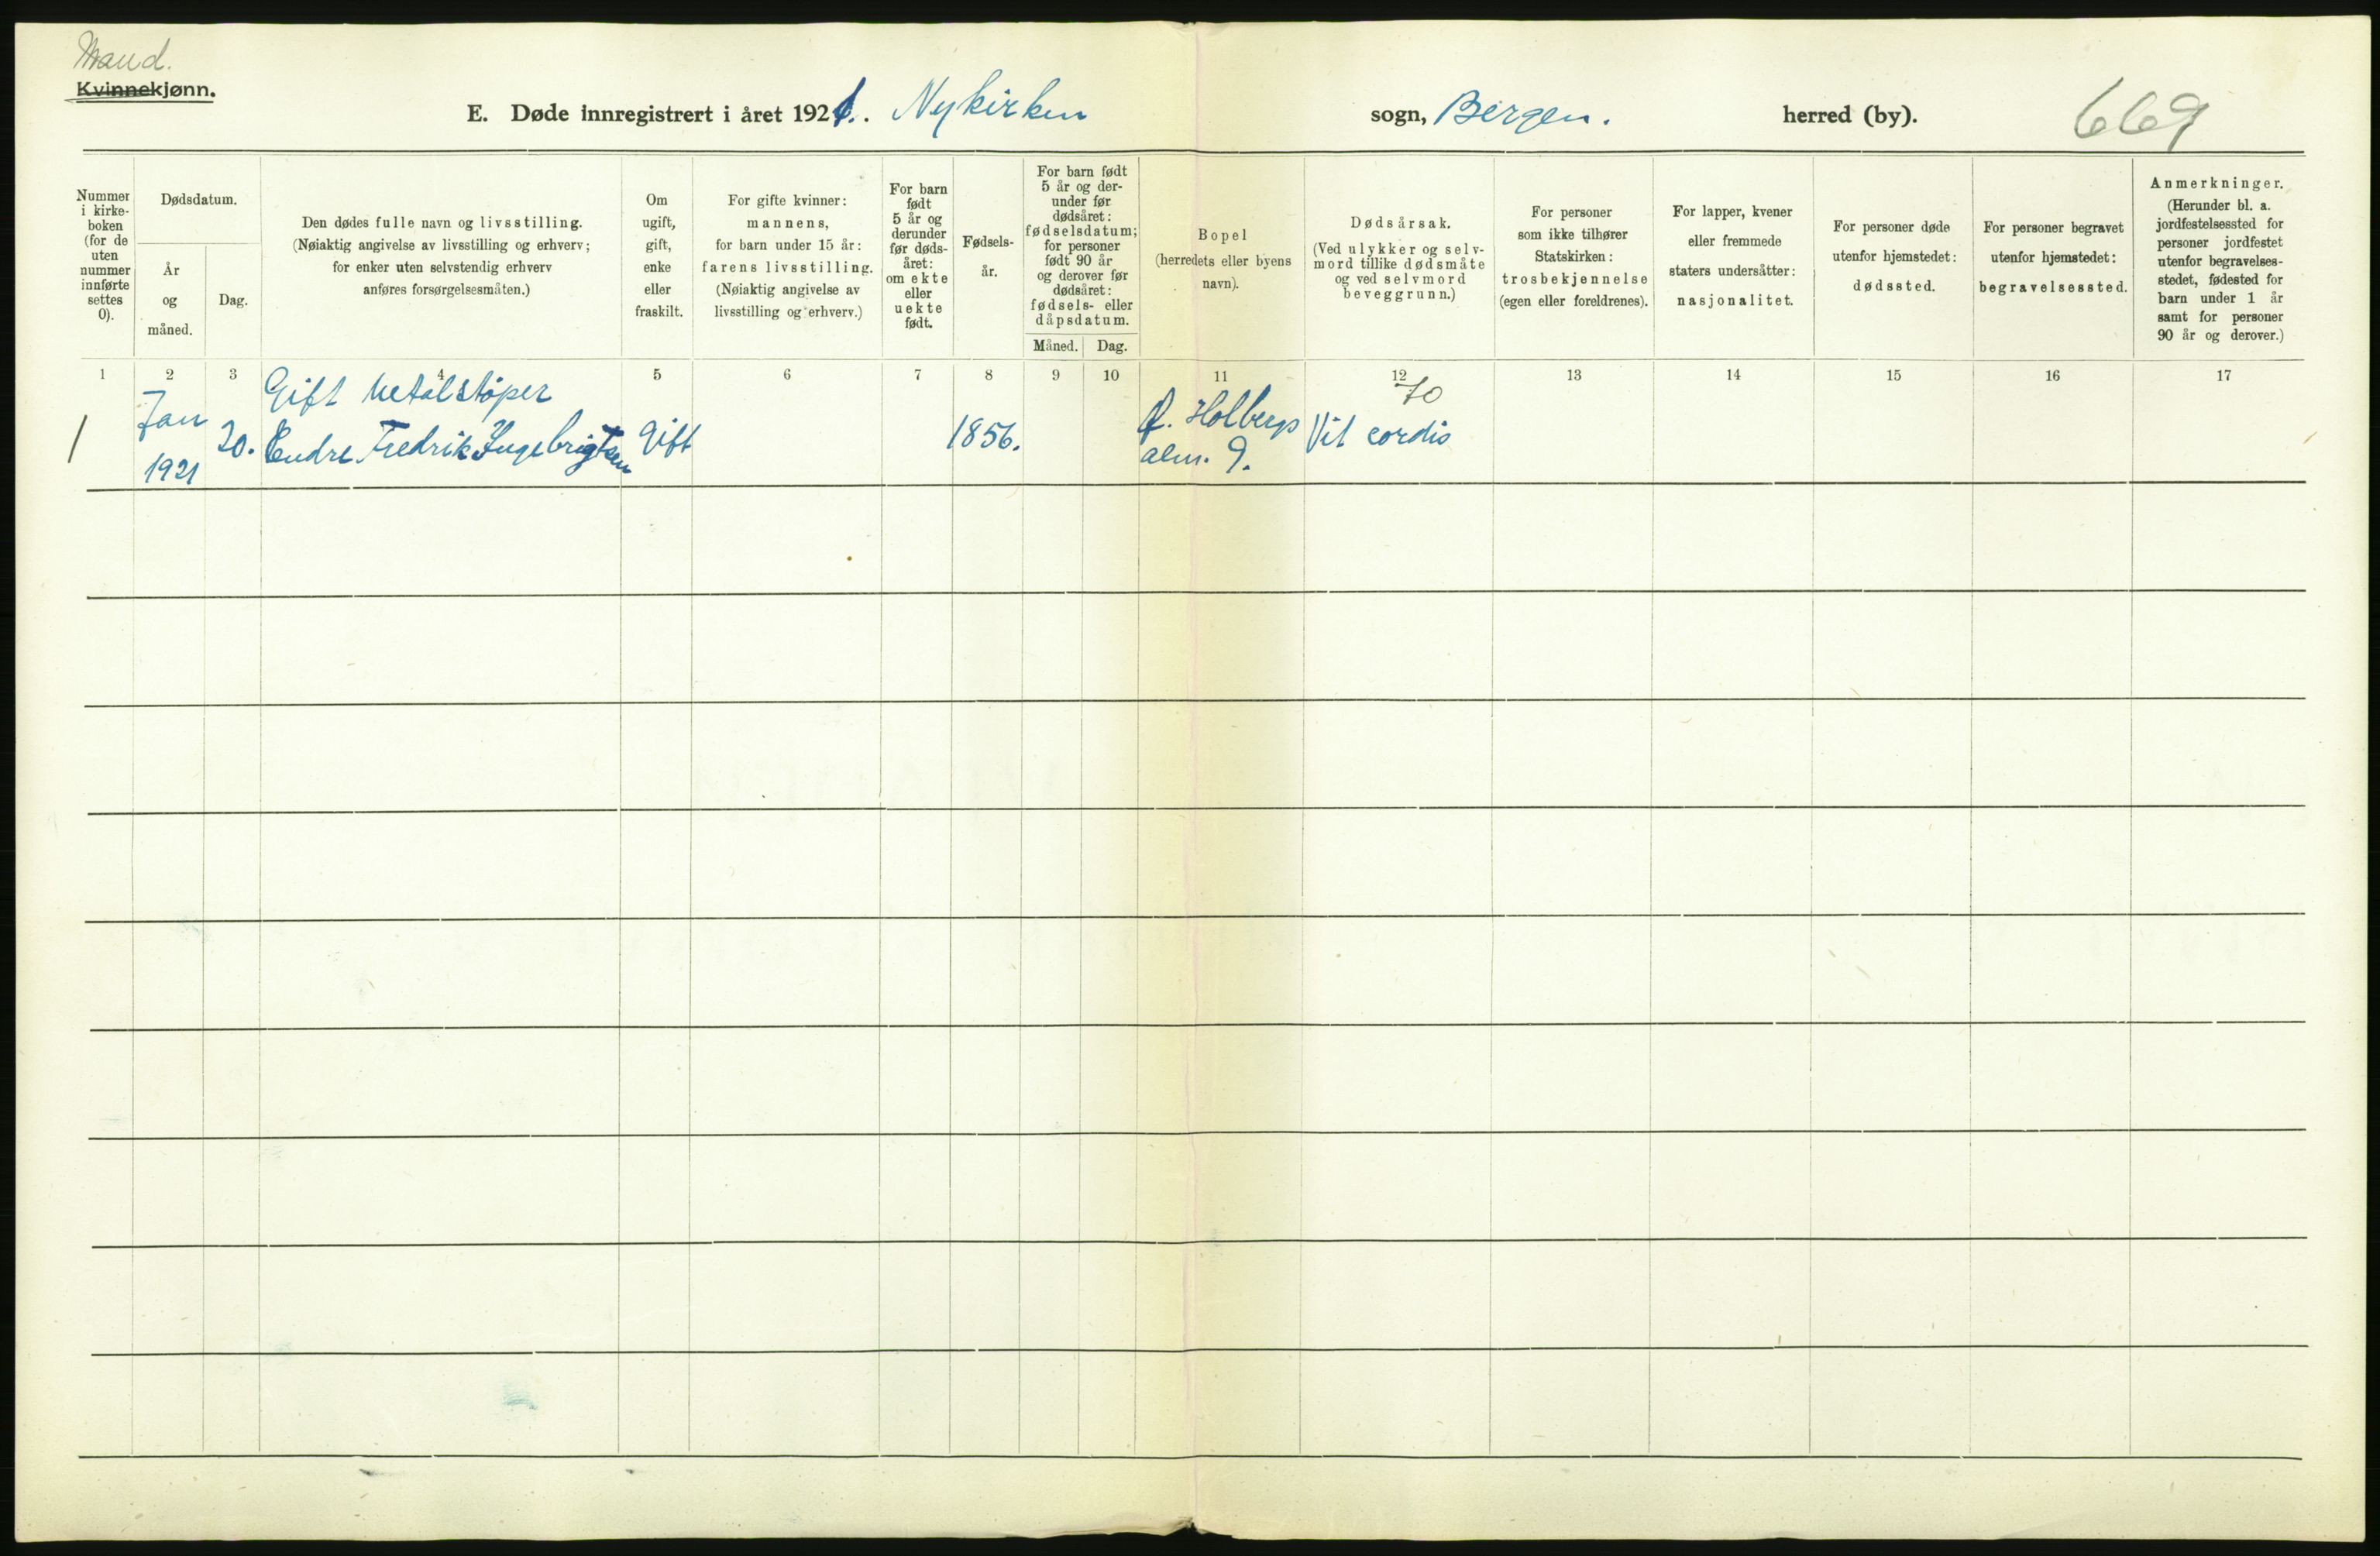 Mand.
Kvinnekjønn.
E. Døde innregistrert i året 1921. Nykirken sogn, Bergen. herred (by). 669
Nummer i kirke-boken (for de uten nummer innførte settes 0).
Dødsdatum.
År og måned.
Dag.
Den dødes fulle navn og livsstilling.
(Nøiaktig angivelse av livsstilling og erhverv;
for enker uten selvstendig erhverv
anføres forsørgelsesmåten.)
Om
ugift,
gift,
enke
eller
fraskilt.
For gifte kvinner:
mannens,
for barn under 15 år:
farens livsstilling.
(Nøiaktig angivelse av
livsstilling og erhverv.)
For barn
født
5 år og
derunder
før døds-
året:
om ekte
eller
uekte
født.
Fødsels-
år.
For barn født
5 år og der-
under før
dødsåret:
fødselsdatum;
for personer
født 90 år
og derover før
dødsåret:
fødsels- eller
dåpsdatum.
Måned. Dag.
Bopel
(herredets eller byens
navn).
Dødsårsak.
(Ved ulykker og selv-
mord tillike dødsmåte
og ved selvmord
beveggrunn.)
For personer
som ikke tilhører
Statskirken:
trosbekjennelse
(egen eller foreldrenes).
For lapper, kvener
eller fremmede
staters undersåtter:
nasjonalitet.
For personer døde
utenfor hjemstedet:
dødssted.
For personer begravet
utenfor hjemstedet:
begravelsessted.
Anmerkninger.
(Herunder bl. a.
jordfestelsessted for
personer jordfestet
utenfor begravelses-
stedet, fødested for
barn under 1 år
samt for personer
90 år og derover.)
1 2 3 4 5 6 7 8 9 10 11 12 13 14 15 16 17
1
Jan
1921
20.
Gift Metalstøper
Endre Fredrik Ingebrigtsen
Gift
1856.
Holbergs
alm. 9.
70
Vit cordis